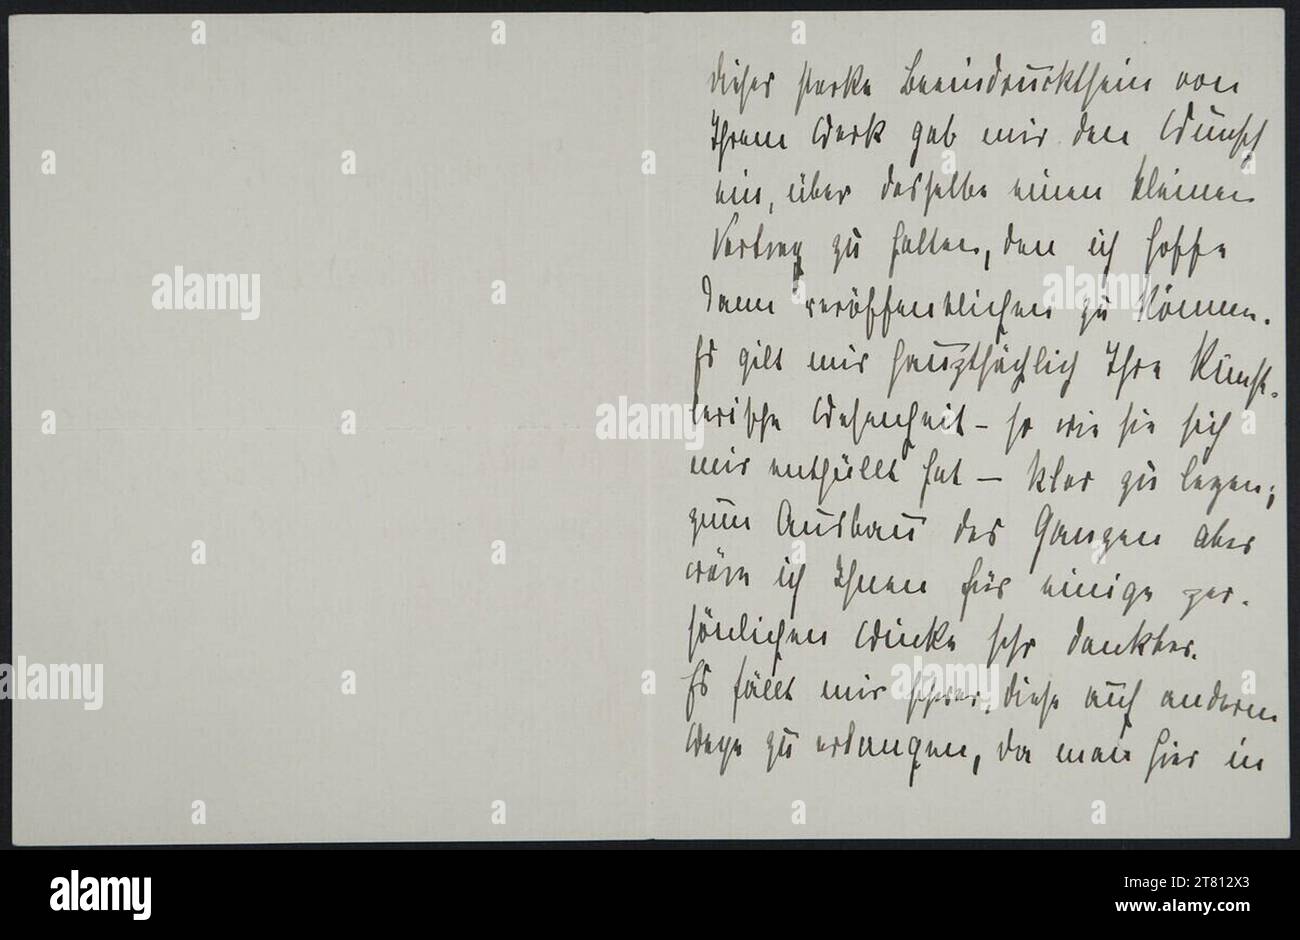 dieses starke Beeindrucktsein von
Ihrem Werk gab mir den Wunsch
ein, über dasselbe einen kleinen
Vortrag zu halten, den ich hoffe
dann veröffentlichen zu können.
Es gilt mir hauptsächlich Ihre künst-
lerische Wesenheit – so wie sie sich
mir enthüllt hat – klar zu legen;
zum Ausbau des Ganzen aber
wäre ich Ihnen für einige per-
sönlichen Winke sehr dankbar.
Es fällt mir schwer, diese auf anderem
Wege zu erlangen, da man hier in
alamy
alamy
alamy
alamy
alamy
alamy
Image ID: 2T812X3
www.alamy.com